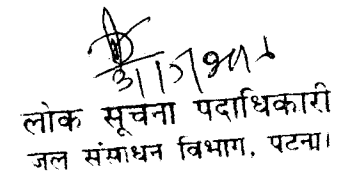 लोक सूचना पदाधिकारी
जल संसाधन विभाग, पटना।